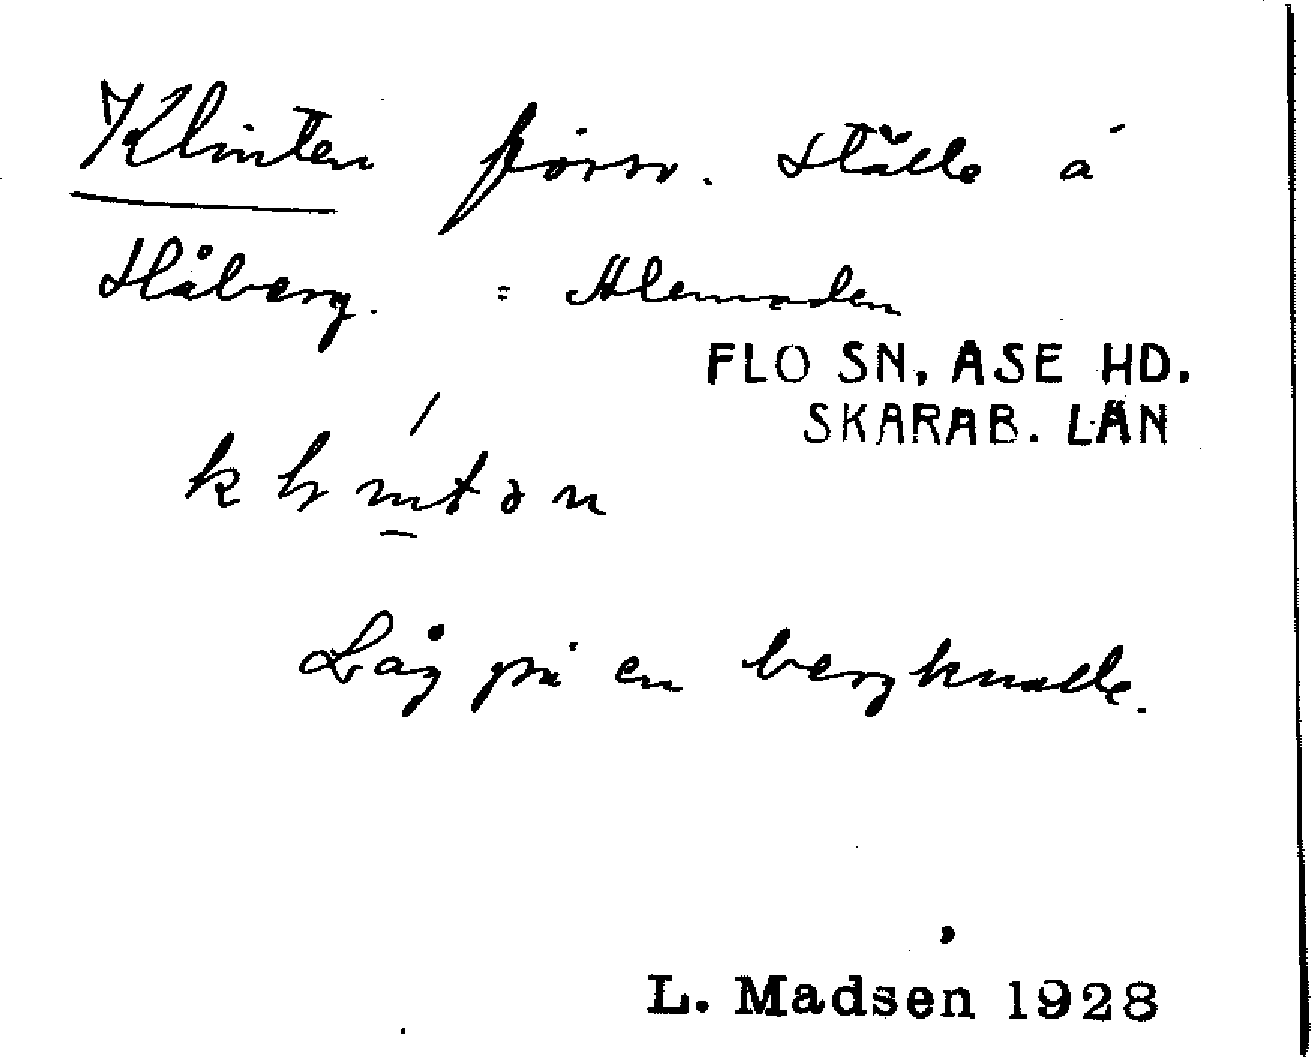 Klinten försv. ställe å
Håberg. = Alemaden
FLO SN, ASE HD.
SKARAB. LÄN
klintən
Låg på en bergknalle.
L. Madsen 1928